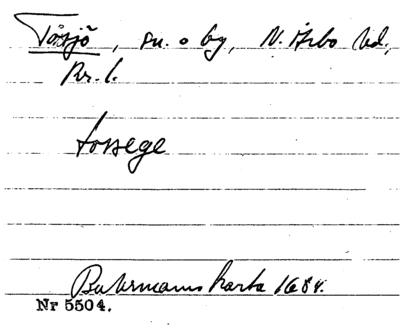 Tåsjö, sn. o by, N. Åsbo hd,
Kr. l.
tossege
Buhrmans karta 1684.
Nr 5504.